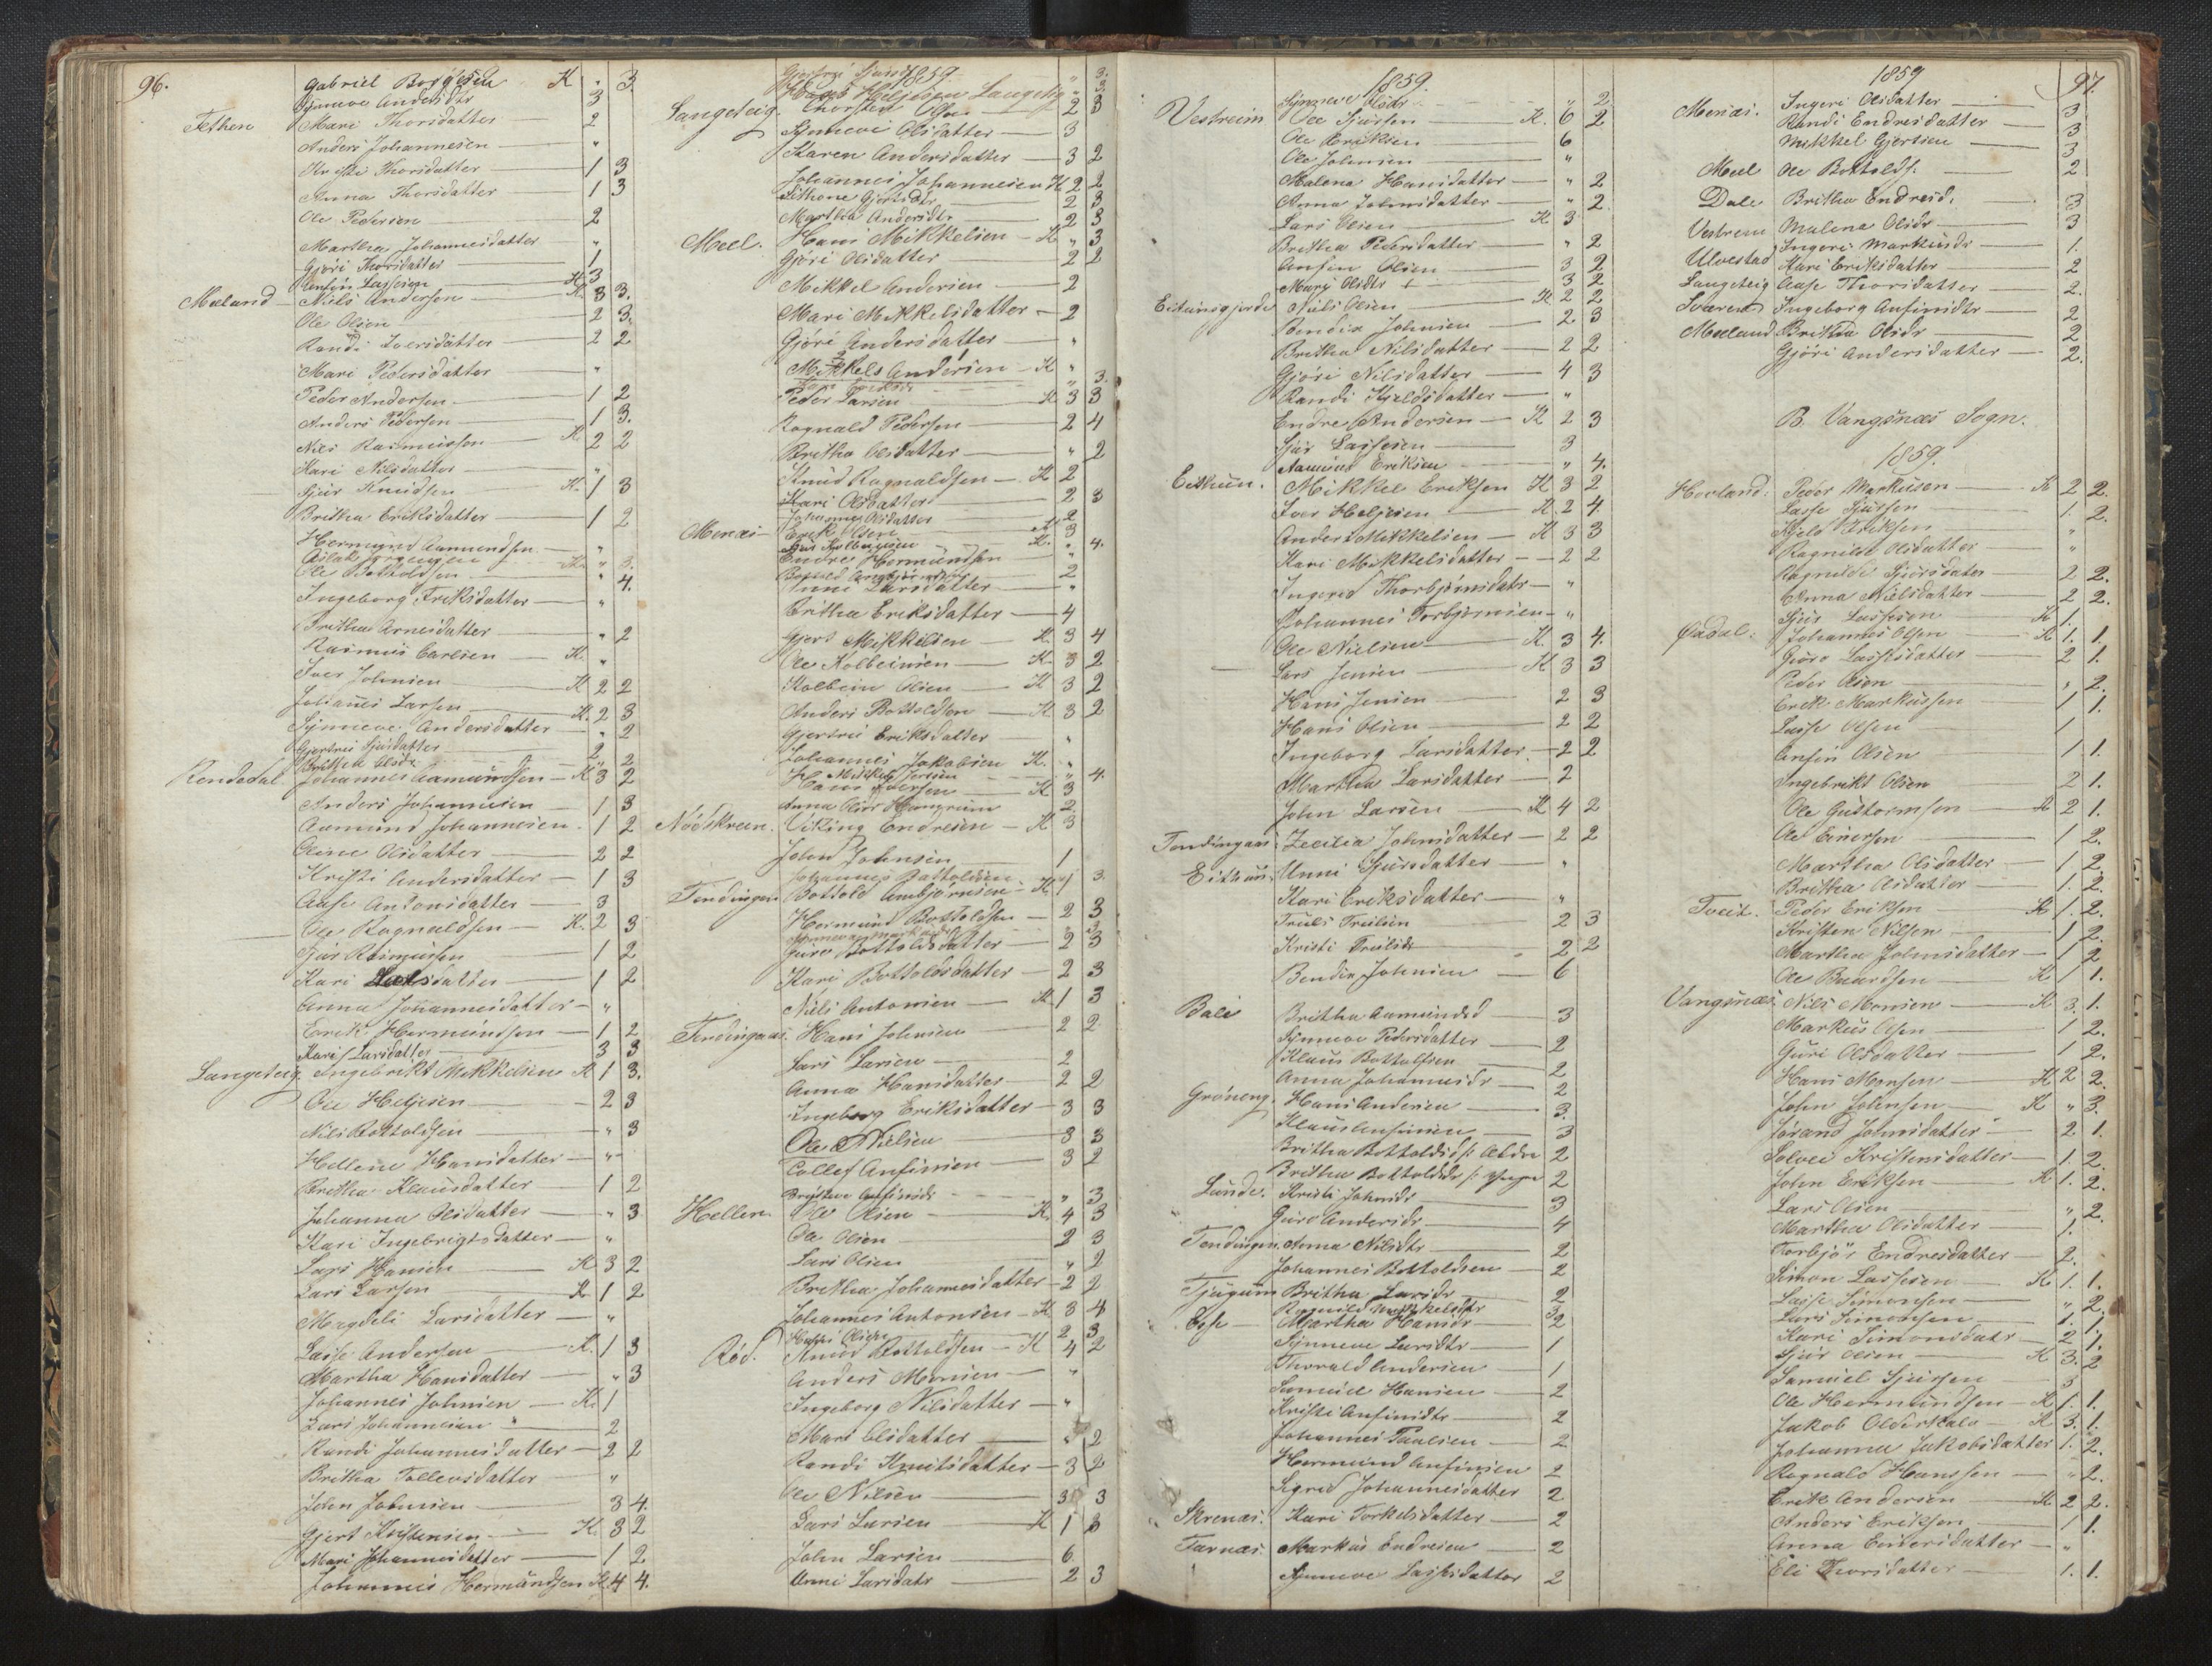 96.
Gabriel Borgesen K " 3
Synneve Andersdtr 3
Fethen Mari Thorsdatter — 2
Anders Johannesen — "
Kristi Thorsdatter — 1 3
Anna Thorsdatter — 1 3
Ole Pedersen — 2
Martha Johannesdatter "
Gjøri Thorsdatter — 1
Anfin Lassesen K 3
Mæland — Niels Andersen — K. 3 3.
Ole Olsen — 2 3.
Randi Iversdatter — 2 2
Mari Pedersdatter "
Peder Andersen — 1 2
Anders Pedersen — 1 3.
Nils Rasmussen — K 2 2
Kari Nilsdatter — "
Sjur Knudsen — K. 1 3
Britha Eriksdatter — 1 2
Hermund Aamundsen — "
Ole Bottoldsen — " 4.
Ingeborg Eriksdatter — "
Britha Arnesdatter — " 2
Rasmus Carlsen — K "
Iver Johnsen — K 2 2
Johannes Larsen — K. 2 3
Synneve Andersdatter — " 2
Gjertrud Sjursdatter — 2
Britha Olsdr " 2
Rendedal Johannes Aamundsen — K 3 2
Anders Johannesen — 1 3
Aamund Johannesen. 1 2
Oline Olsdatter — 2 2
Kristi Andersdatter — 1 3
Aase Antonsdatter — 3
Ole Ragnaldsen — K. 2 3
Sjur Rasmusen — 1 2
Kari datter — 1 2
Anna Johannesdatter — "
Erik Hermundsen — 1 2
Kari Larsdatter — 3 3
Langeteig. Ingebrikt Mikkelsen K 1 3.
Ole Heljesen — 2 3
Nils Bottolsen — " 3
Hellene Hansdatter — "
Britha Klausdatter — 1 2
Johanna Olsdatter — " 3
Kari Ingebrigtsdatter — "
Lars Hansen — K 3 2
Lars Larsen — K 1 2
Magdeli Larsdatter — "
Lasse Andersen — K. 1 3
Martha Hansdatter — " 3
Johannes Johnsen — K. 1
Lars Johannesen 2
Randi Johannesdatter — 2 2
Britha Tollevsdatter — "
John Johnsen — 3 4.
Gjert Kristensen — K. 3 2
Mari Johannesdatter — 1 2
Johannes Hermundsen K. 4 4.
1859.
Hans Heljesen Langeteig " 3.
Langeteig. Thorsten Olsen — 2 3
Synneve Olsdatter — 3
Karen Andersdatter — 3 2
Johannes Johannesen K 2 2
Sithone Gjertsdtr — 2 3
Martha Andersdtr — 2 3
Meel. Hans Mikkelsen — K " 3
Gjøri Olsdatter — 2 2
Mikkel Andersen — 2
Mari Mikkelsdatter — 2
Gjøri Andersdatter — "
Mikkels Andersen — K "
Kari Eriksdr " 3.
Peder Larsen — K 3 3
Ragnald Pedersen — 2 4
Britha Olsdatter — " 2
Knud Ragnaldsen — K 2
Kari Olsdatter — 2 3
Johanna Olsdatter — 2
Menæs — Erik Olsen — K 3
Kolbeinsen — K. " 4.
Endre Hermundsen "
Bottold 2
Anni Larsdatter — "
Britha Eriksdatter — 4
Gjert Mikkelsen — K. 3 4
Ole Kolbeinsen — K. 3 2
Kolbein Olsen — K 3 2
Anders Bottoldsen — K 3 2
Gjertrud Eriksdatter — "
Johannes Jakobsen K. "
Mikkel Iversen — " 4.
Hans Iversen — K 3
Anna Olsdr 2
Nødskreen. Viking Endresen — K 3
John Johnsen — 1
Johannes Bottoldsen 3.
Fendingen Bottold Anbjørnsen — K. 1
Hermund Bottoldsen — 2 3
Synneva Markusdtr " 3
Guro Bottoldsdatter — 2 3
Kari Bottoldsdatter — 2 3
Nils Antonsen — K 1 3
Fendingaas. Hans Johnsen — 2 2
Lars Larsen — 2
Anna Hansdatter — 2 2
Ingeborg Eriksdatter — 3 3
Ole Nielsen — 3 3
Tollef Anfinsen — 3 2
Anfinsdr " 3
Hellen Ole Olsen — K. 4 3
Ole Olsen — 2 3
Lars Olsen — " 2
Britha Johannesdatter — 2 2
Johannes Antonsen — K 3 4
Hans Olsen 2 3
Rød. Knud Bottoldsen — K 4 2
Anders Monsen — "
Ingeborg Nilsdatter — "
Mari Olsdatter — " 2
Randi Knutsdatter — 3 2
Ole Nilsen — 3 3
Lars Larsen — K 1 3
John Larsen — 6.
Anni Larsdatr — 2 3
1859.
Synneve Olsdr. " 2.
Vestreim Ole Sjursen — K. 6 2
Ole Eriksen — 6
Ole Johnsen — "
Malena Hansdatter — " 2
Anna Johnsdatter — " 2.
Lars Olsen — K 3
Britha Pedersdatter — " 2
Anfin Olsen — 3 2
Mari Olsdtr 3 2
Eitunsgjerde Niels Olsen — K 2 2
Bendix Johnsen — 2 3
Britha Nilsdatter — 2 2
Gjøri Nilsdatter — 4 3
Randi Kjeldsdatter — "
Endre Andersen — K 2 3
Sjur Lassesen — 3
Rasmus Eriksen — " 4.
Eithun. Mikkel Eriksen K 3 2
Iver Heljesen — K. 2 4.
Anders Mikkelsen — K 3 3
Kari Mikkelsdatter — 2 2
Ingerid Thorbjørnsdatr — "
Johannes Torbjørnsen — "
Ole Nielsen — K. 3 4.
Lars Jensen — K 3 3
Hans Jensen 2 3
Hans Olsen — 2 2
Ingeborg Larsdatter. — 2 2
Martha Larsdatter — 2
John Larsen — K 4 2
Fendingaas Zecilia Johnsdatter — 2 2
Eithun. Unni Sjursdatter — "
Kari Eriksdatter — "
Truls Trulsen 2 3
Kristi Trulsdr 2 2
Bendix Johnsen — 6
Bale Britha Aamundsd — 3
Synneve Pedersdatter — 2
Klaus Bottolfsen — 2
Anna Johannesdr — 2
Grøneng. Hans Andersen — 3.
Klaus Anfinsen — 3
Britha Bottoldsd /: Eldre 2
Britha Bottoldsdr /: Yngre 2
Lunde. Kristi Johnsdr — 3
Guro Andersdr — 4
Fendingen. Anna Nilsdtr — 2
Johannes Bottoldsen — 2
Tjugum Britha Larsdr — 2
Ragnild Mikkelsdtr 3
Martha Hansdr — 2
Synneve Larsdtr — 1
Thorvald Andersen — 1
Samuel Hansen — 2
Kristi Anfinsdtr — 2
Johannes Paulsen — 2
Hermund Anfinsen 2
Sigrid Johannesdatter 2
Skrenæs. Kari Torkelsdatter — 2
Farnæs. Markus Endresen — 2
Synneve Lassesdatter 2
1859
97.
Menæs. Ingeri Olsdatter — 3
Randi Endresdatter — 3
Mikkel Gjertsen — 3
Meel Ole Bottolds. — 2
Dale Britha Endresd. — 3
Vestreim Malena Olsdr — 3
Ulvestad Ingeri Markusdr — 1.
Kari Eriksdatter — 2
Langeteig Aase Thorsdatter — 2.
Sværen Ingeborg Anfinsdtr — 2
Mæland. Britha Olsdr — 2
Gjøri Andersdatter — 2.
B. Vangsnæs Sogn.
1859.
Hovland. Peder Markusen — K 2 2.
Lasse Sjursen — 1. 2.
Kjeld Eriksen — "
Ragnilda Olsdatter — "
Ragnilde Sjursdater — 2 2.
Anna Nielsdatter — 2 2.
Sjur Lassesen — K 1.
Johannes Olsen — K 1. 1.
Guro Lassesdatter — 2 1.
Peder Olsen — " 2.
Erik Markussen — 1 1.
Lasse Olsen — 1
Anfin Olsen 1 1.
Ingebrikt Olsen — 2 1.
Ole Guttormsen — K 2 1.
Ole Einersen — 1 2.
Martha Olsdatter — 1 2.
Britha Olsdatter — 1. 2.
Tveit. Peder Eriksen — K 1. 2.
Kristen Nilsen — 1 2.
Martha Johnsdatter — 1 2
Ole Baardsen — K 1 1.
Vangsnæs Nils Monsen — K 3. 1.
Markus Olsen — 1 2.
Guri Olsdatter — 1 2.
Hans Monsen — K 2 2.
John Johnsen — K " 3.
Jørand Johnsdatter — 2 1.
Solvei Kristensdatter — 1. 2.
John Eriksen — K 1. 2.
Lars Olsen — " 2.
Martha Olsdatter — 1.
Torbjør Endresdatter — 2.
Simon Lassesen — K 1. 1.
Lasse Simonsen — " 2.
Lars Simonsen — 1. 1.
Kari Simonsdatr — 2 1.
Sjur Olsen — K 3. 2
Samuel Sjursen — 3
Ole Hermundsen — K 1. 1.
Jakob Olderkalv — K 3. 1.
Johanna Jakobsdatter 1. 2.
Ragnald Hanssen — " 2.
Erik Andersen — K 2 2.
Anders Eriksen — 1 1.
Anna Einersdatter — "
Eli Thorsdatter — 1. 1.